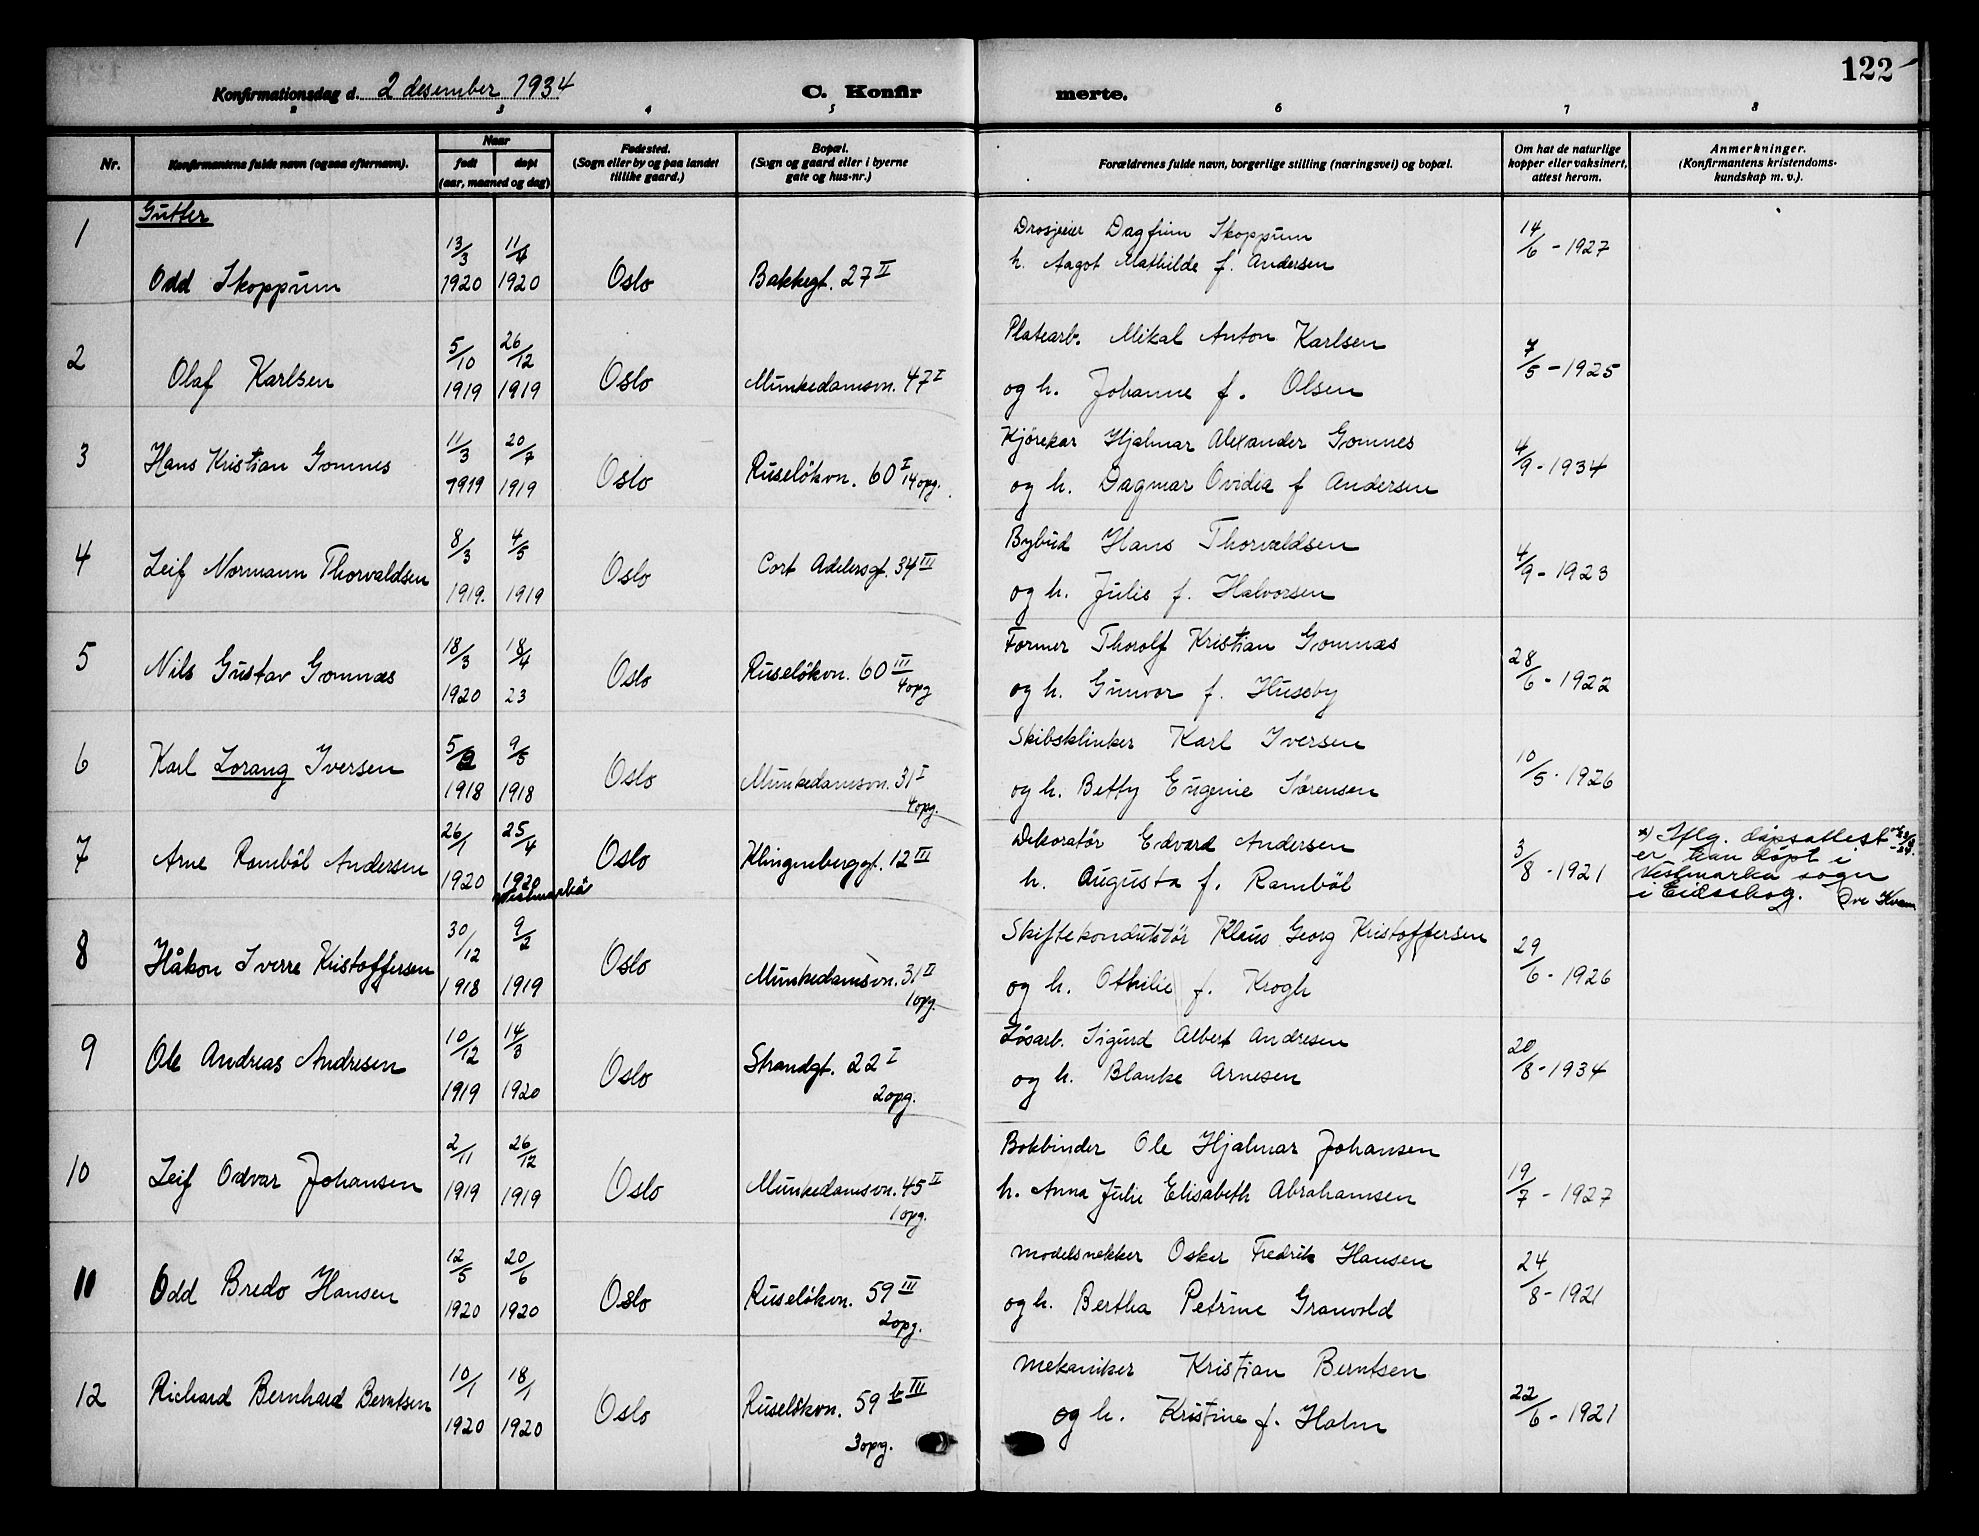 122
Konfirmationsdag d. 2 desember 1934 C. Konfir merte.
2 3 4 5 6 7 8
Nr. Konfirmantens fulde navn (ogsaa efternavn). Naar født døpt (aar, maaned og dag) Fødested. (Sogn eller by og paa landet tillike gaard.) Bopæl. (Sogn og gaard eller i byerne gate og hus-nr.) Forældrenes fulde navn, borgerlige stilling (næringsvei) og bopæl. Om hat de naturlige kopper eller vaksinert, attest herom. Anmerkninger. (Konfirmantens kristendoms-kundskap m. v.).
Gutter
1 Odd Skoppum 13/3 1920 11/4 1920 Oslo Bakkegt. 27 II
Drosjeeier Dagfinn Skoppum
h. Aagot Mathilde f. Andersen
14/6 - 1927
2 Olaf Karlsen 5/10 1919 26/12 1919 Oslo Munkedamsvn. 47 I
Platearb. Mikal Anton Karlsen
og h. Johanne f. Olsen
7/5 - 1925
3 Hans Kristian Gomnes 11/3 1919 20/7 1919 Oslo Ruseløkvn. 60 I 14 opg.
Kjørekar Hjalmar Alexander Gomnes
og h. Dagmar Ovidia f Andersen
4/9 - 1934
4 Leif Normann Thorvaldsen 8/3 1919. 4/5 1919 Oslo Cort Adelersgt. 34 III
Bybud Hans Thorvaldsen
og h. Julie f. Halvorsen
4/9 - 1923
5 Nils Gustav Gomnæs 18/3 1920 18/4 23 Oslo Ruseløkvn. 60 III 4 opg
Former Thorolf Kristian Gomnæs
og h. Gunvor f. Huseby
28/6 - 1922
6 Karl Lorang Iversen 5/2 1918 9/5 1918 Oslo Munkedamsvn. 31 I 4 opg.
Skibsklinker Karl Iversen
og h. Betty Eugenie Sørensen
10/5 - 1926
7 Arne Rambøl Andersen 26/1 1920 25/4 1920 Vestmarka Oslo Klingenberggt. 12 III
Dekoratør Edvard Andersen
h. Augusta f. Rambøl
3/8 - 1921
x) Iflg. dåpsattest
er han døpt i
Vestmarka sogn
i Eidsskog. Ove Kvam
8 Håkon Sverre Kristoffersen 30/12 1918 9/2 1919 Oslo Munkedamsvn. 31 II 1 opg.
Skiftekonduktør Klaus Georg Kristoffersen
og h. Othilie f. Krogh
29/6 - 1926
9 Ole Andreas Andresen 10/12 1919 14/3 1920 Oslo Strandgt. 22 I 2 opg.
Løsarb. Sigurd Albert Andresen
og h. Blanke Arnesen
20/8 - 1934
10 Leif Odvar Johansen 2/11 1919 26/12 1919 Oslo Munkedamsvn. 45 II 1 opg.
Bokbinder Ole Hjalmar Johansen
h. Anna Julie Elisabeth Abrahamsen
19/7 - 1927
11 Odd Bredo Hansen 12/5 1920 20/6 1920 Oslo Ruseløkvn. 59 III 2 opg.
Modelsnekker Oskar Fredrik Hansen
og h. Bertha Petrine Granvold
24/8 - 1921
12 Richard Bernhard Berntsen 10/1 1920 18/1 1920 Oslo Ruseløkvn. 59 b III 3 opg.
Mekaniker Kristian Berntsen
og h. Kristine f. Holm
22/6 - 1921